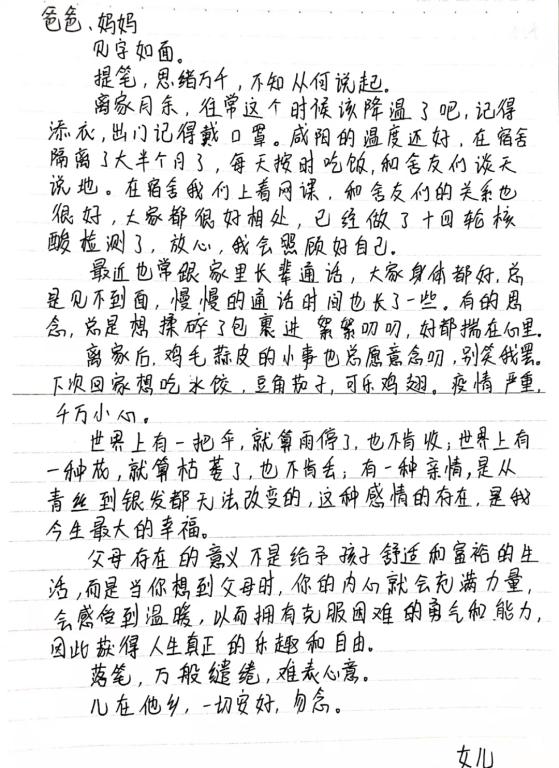 爸爸、妈妈
见字如面。
提笔,思绪万千,不知从何说起。
离家月余,往常这个时候该降温了吧,记得
添衣,出门记得戴口罩。咸阳的温度还好,在宿舍
隔离了大半个月了,每天按时吃饭,和舍友们谈天
说地。在宿舍我们上着网课,和舍友们的关系也
很好,大家都很好相处,已经做了十回轮核
酸检测了,放心,我会照顾好自己。
最近也常跟家里长辈通话,大家身体都好,总
是见不到面,慢慢的通话时间也长了一些。有的思
念,总是想揉碎了包裹进絮絮叨叨,好都揣在心里。
离家后,鸡毛蒜皮的小事也总愿意念叨,别笑我罢。
下次回家想吃水饺,豆角茄子,可乐鸡翅。疫情严重,
千万小心。
世界上有一把伞,就算雨停了,也不肯收;世界上有
一种花,就算枯萎了,也不肯丢;有一种亲情,是从
青丝到银发都无法改变的,这种感情的存在,是我
今生最大的幸福。
父母存在的意义不是给予孩子舒适和富裕的生
活,而是当你想到父母时,你的内心就会充满力量,
会感受到温暖,以而拥有克服困难的勇气和能力,
因此获得人生真正的乐趣和自由。
落笔,万般缱绻,难表心意。
儿在他乡,一切安好,勿念。
女儿